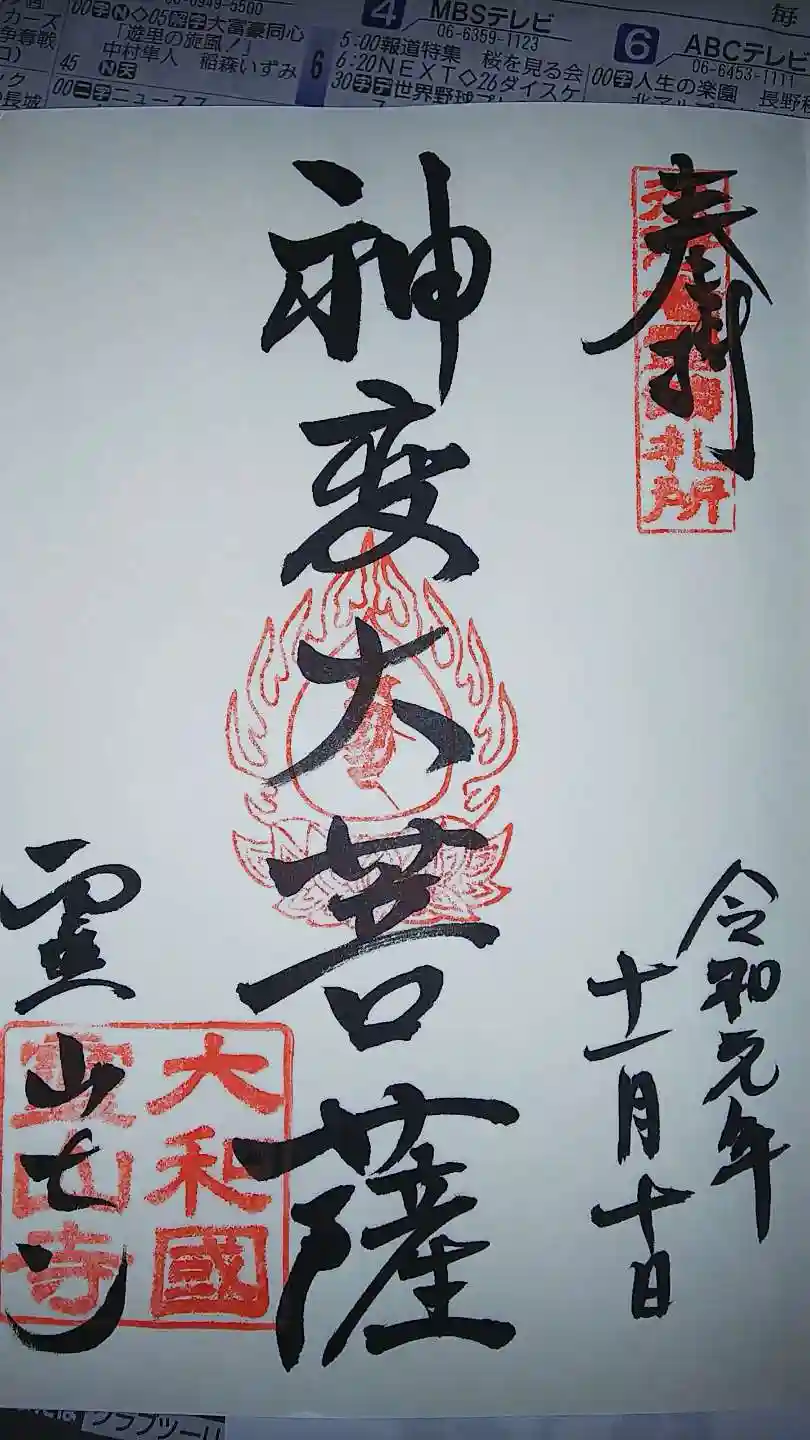 06-6949-5500
00字N◇05解字大富豪同心
「遊里の旋風!」
中村隼人 稲森いずみ
45 N天
00二字ニュース7
カーズ
争奪戦
長城
6
4 MBSテレビ
06-6359-1123
5:00報道特集 桜を見る会
6:20NEXT◇26ダイスケ
30字デ世界野球プレ
毎
6 ABCテレビ
06-6453-1111
00字人生の楽園 長野
北アルプ
奉拝
札所
令和元年
十一月十日
神変大菩薩
霊山寺
大和國
霊山寺
クラブツーリ